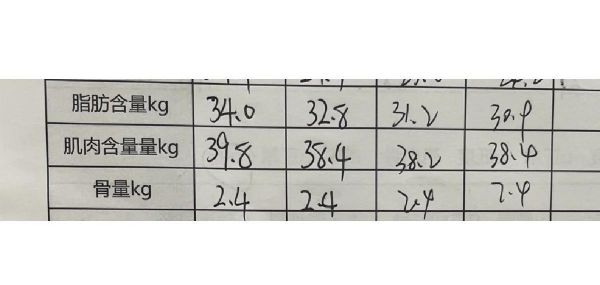 脂肪含量kg 34.0 32.8 31.2 30.9
肌肉含量量kg 39.8 38.4 38.2 38.4
骨量kg 2.4 2.4 2.4 2.4